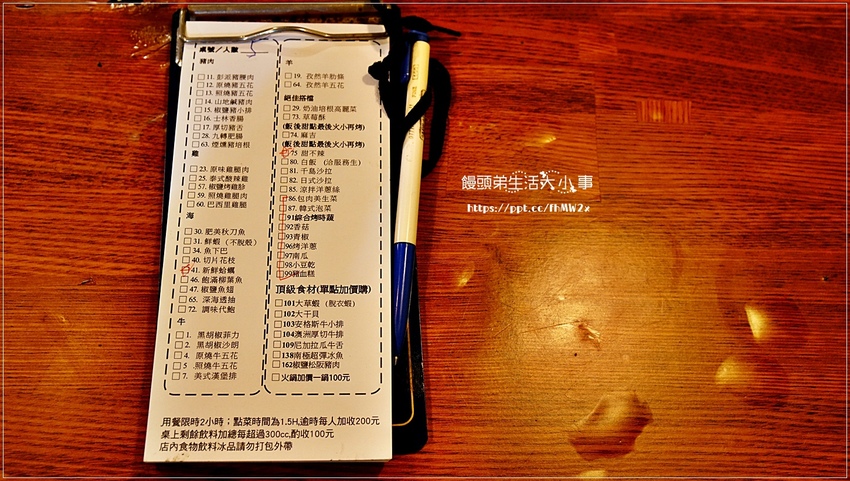 桌號／人數 5
豬肉
□11. 彭派豬腰肉
□12. 原燒豬五花
□13. 照燒豬五花
□14. 山地鹹豬肉
□15. 椒鹽豬小排
□16. 士林香腸
□17. 厚切豬舌
□28. 九轉肥腸
□63. 煙燻豬培根
雞
□23. 原味雞腿肉
□25. 泰式酸辣雞
□57. 椒鹽烤雞胗
□59. 照燒雞腿肉
□60. 巴西里雞腿
海
□30. 肥美秋刀魚
□31. 鮮蝦（不脫殼）
□34. 魚下巴
□40. 切片花枝
□41. 新鮮蛤蠣
□46. 飽滿柳葉魚
□47. 椒鹽魚翅
□65. 深海透抽
□72. 調味代鮑
牛
□1. 黑胡椒菲力
□2. 黑胡椒沙朗
□4. 原燒牛五花
□5 .照燒牛五花
□7. 美式漢堡排
羊
□19. 孜然羊肋條
□64. 孜然羊五花
絕佳搭檔
□29. 奶油培根高麗菜
□73. 草莓酥
(飯後甜點最後火小再烤)
□74. 麻吉
(飯後甜點最後火小再烤)
□75 甜不辣
□80. 白飯（洽服務生）
□81. 千島沙拉
□82. 日式沙拉
□85. 涼拌洋蔥絲
□86.包肉美生菜
□87. 韓式泡菜
□91綜合烤時蔬
□92香菇
□93青椒
□96烤洋蔥
□97南瓜
□98小豆乾
□99豬血糕
頂級食材(單點加價購)
□101大草蝦（脫衣蝦）
□102大干貝
□103安格斯牛小排
□104澳洲厚切牛排
□109尼加拉瓜牛舌
□138南極超彈冰魚
□162椒鹽松阪豬肉
□火鍋加價一鍋100元
用餐限時2小時；點菜時間為1.5H,逾時每人加收200元
桌上剩餘飲料加總每超過300cc,酌收100元
店內食物飲料冰品請勿打包外帶
饅頭弟生活大小事
https://ppt.cc/fhMW2x